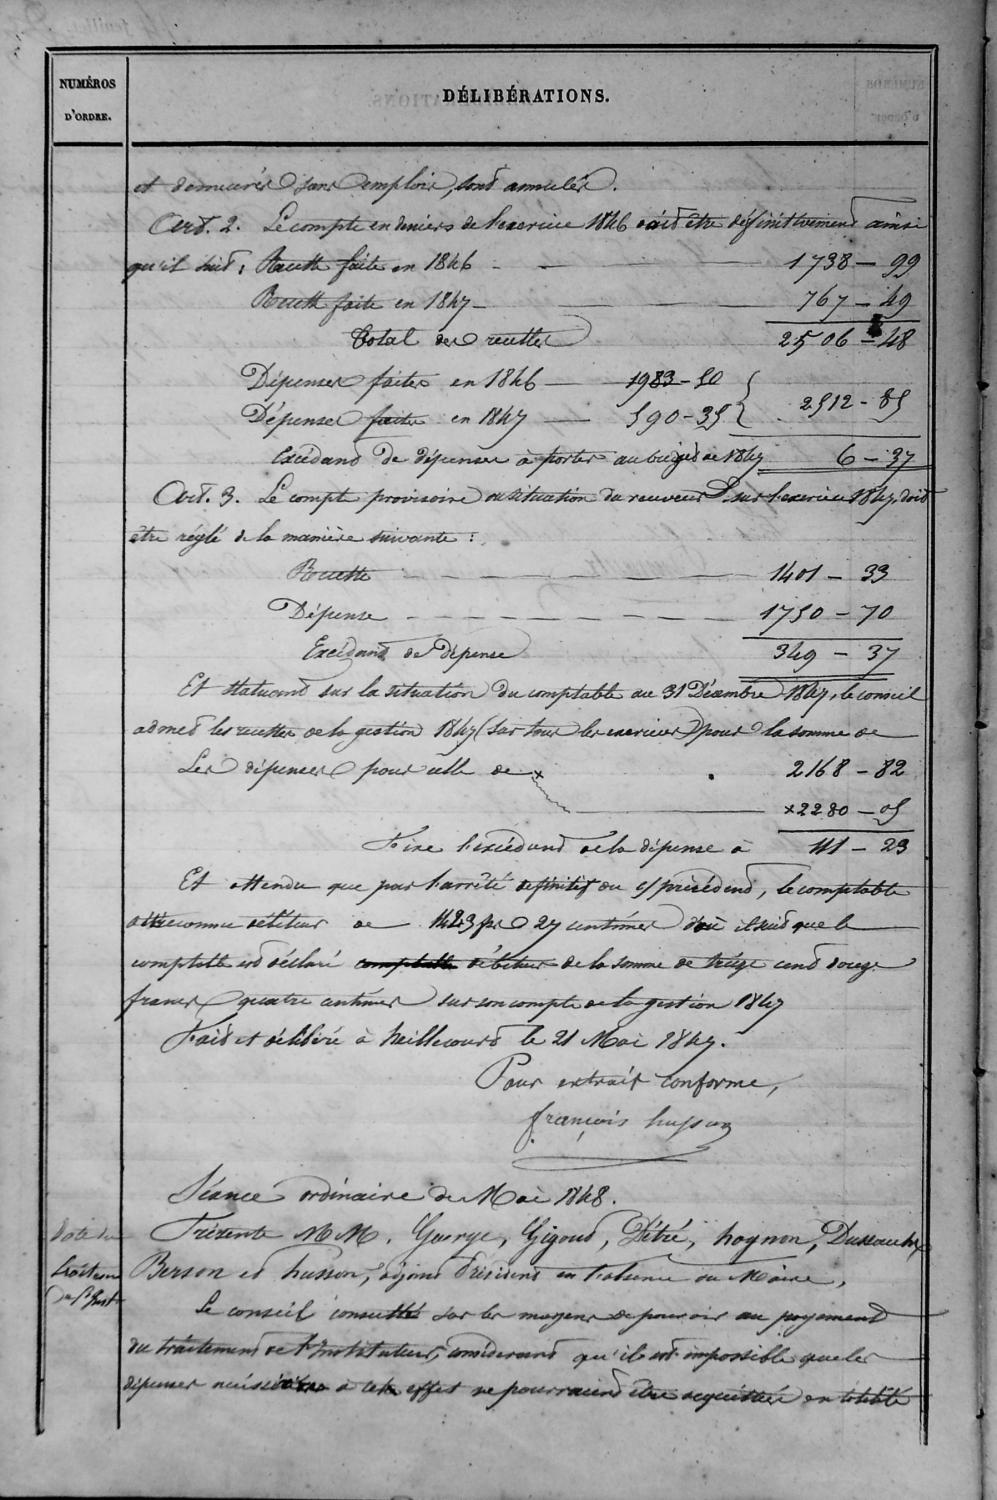 NUMÉROS
D'ORDRE.
DÉLIBÉRATIONS.
et demeurés sans emplois, sont annulés.
Art. 2. Le compte en deniers de l'exercice 1846 doit être définitivement ainsi
qu'il suit, Recette faite en 1846 1738 – 99
Recette faite en 1847 767 – 49
Total des recettes 2506 – 48
Dépenses faites en 1846 1983 – 50
2512 – 85
Dépenses faites en 1847 590 – 35
Excédand de dépenses à porter au budjet de 1847 6 – 37
Art. 3. Le compte provisoire ou situation du receveur sur l'exercice 1847, doit
etre réglé de la manière suivante :
Recette 1401 – 33
Dépense 1750 – 70
Excédant de dépense 349 – 37
Et statuant sur la situation du comptable au 31 Décembre 1847, le conseil
admet les recettes de la gestion 1847 (sur tous les exercices) pour la somme de
Les dépenses pour celle de x 2168 – 82
x 2280 – 05
Fixe l'excédand de la dépense à 111 – 23
Et attendu que par l'arrêté définitif du précédend, le comptable
reconnu débiteur de 1423 fr 27 centimes d'où il suit que le
comptable est déclaré comptable débiteur de la somme de treize cend douze
francs quatre centimes sur son compte de la gestion 1847
Fait et délibéré à heillecourt le 21 Mai 1847.
Pour extrait conforme,
françois husson
Séance ordinaire de Mai 1848.
Présents MM. George, Gigout, Pétré, hognon, Dussaulx
Berson et husson, adjoint Président en l'absence du Maire,
Le conseil consulté sur les moyens de pourvoir au payement
du traitement de l'Instituteur, considerant qu'il est impossible que les
dépenses nécessaires à cet effet ne pourraient être acquittées en totalité